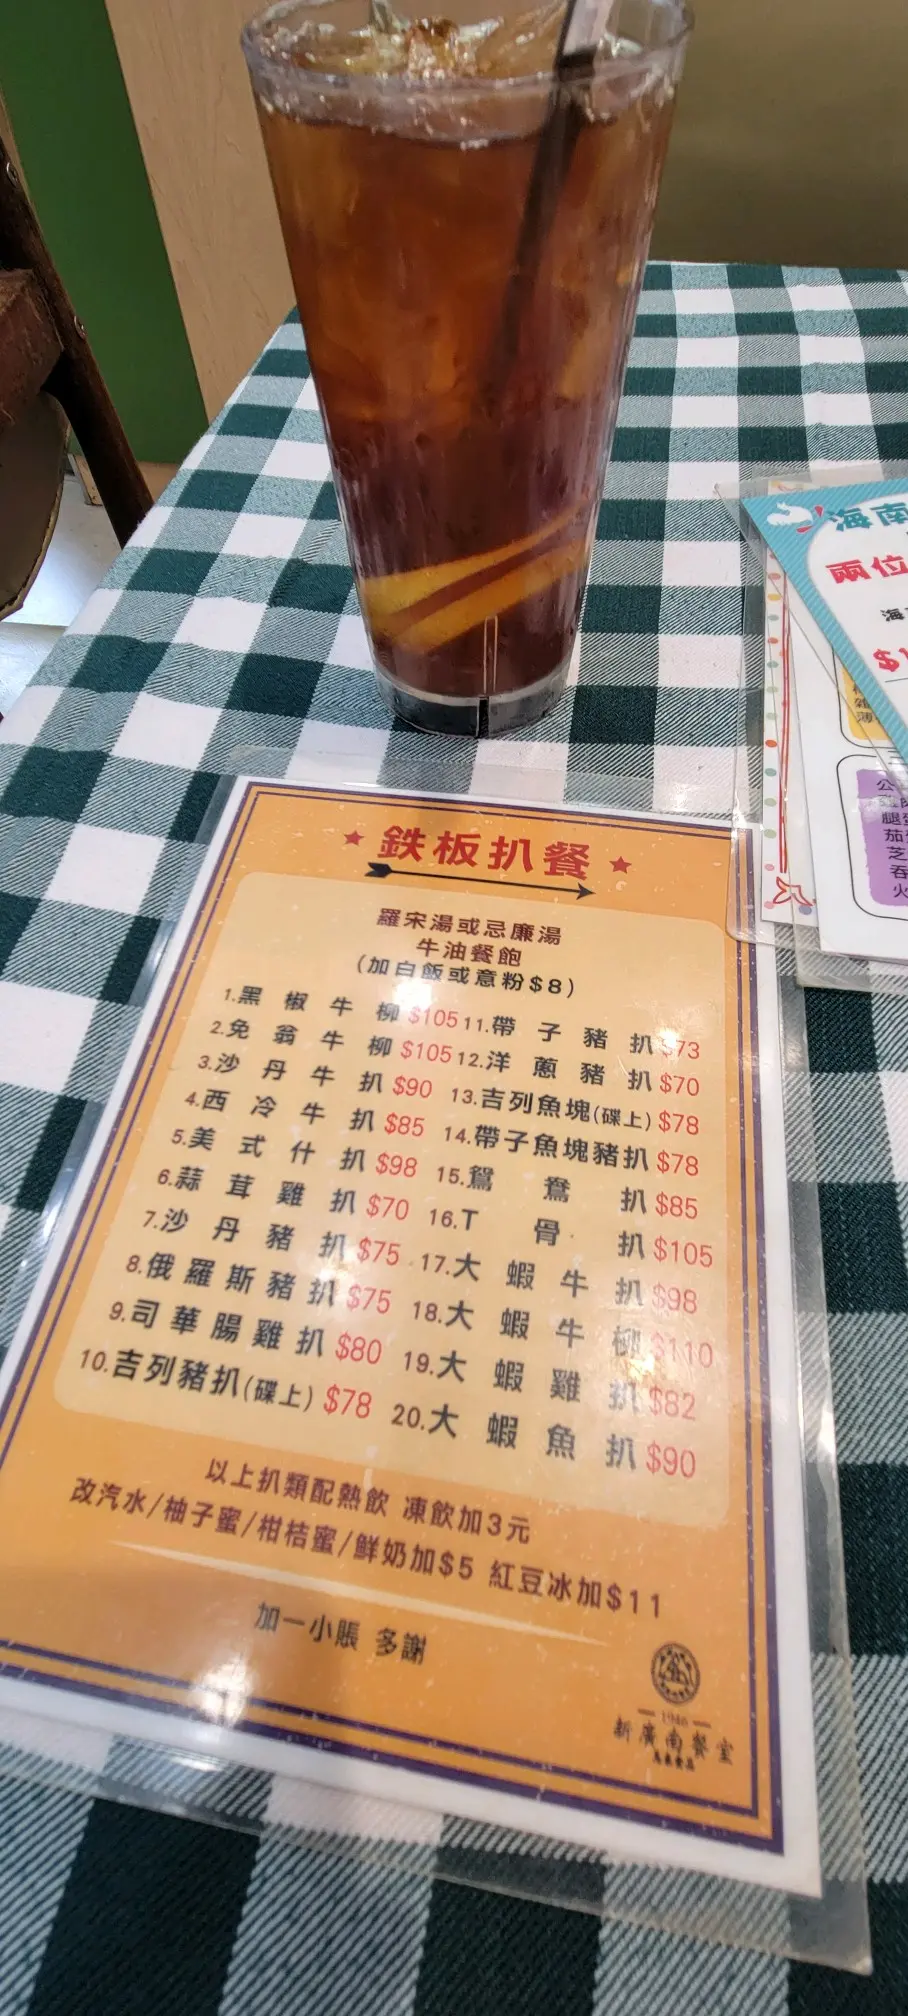 鉄板扒餐
羅宋湯或忌廉湯
牛油餐飽
(加白飯或意粉$8)
1.黑椒牛柳 $105
2.免翁牛柳 $105
3.沙丹牛扒 $90
4.西冷牛扒 $85
5.美式什扒 $98
6.蒜茸雞扒 $70
7.沙丹豬扒 $75
8.俄羅斯豬扒 $75
9.司華腸雞扒 $80
10.吉列豬扒(碟上) $78
11.帶子豬扒 $73
12.洋蔥豬扒 $70
13.吉列魚塊(碟上) $78
14.帶子魚塊豬扒 $78
15.鴛鴦扒 $85
16.T骨扒 $105
17.大蝦牛扒 $98
18.大蝦牛柳 $110
19.大蝦雞扒 $82
20.大蝦魚扒 $90
以上扒類配熱飲 凍飲加3元
改汽水/柚子蜜/柑桔蜜/鮮奶加$5 紅豆冰加$11
加一小賬 多謝
1946
新廣南餐室
海南
兩位
海
$1